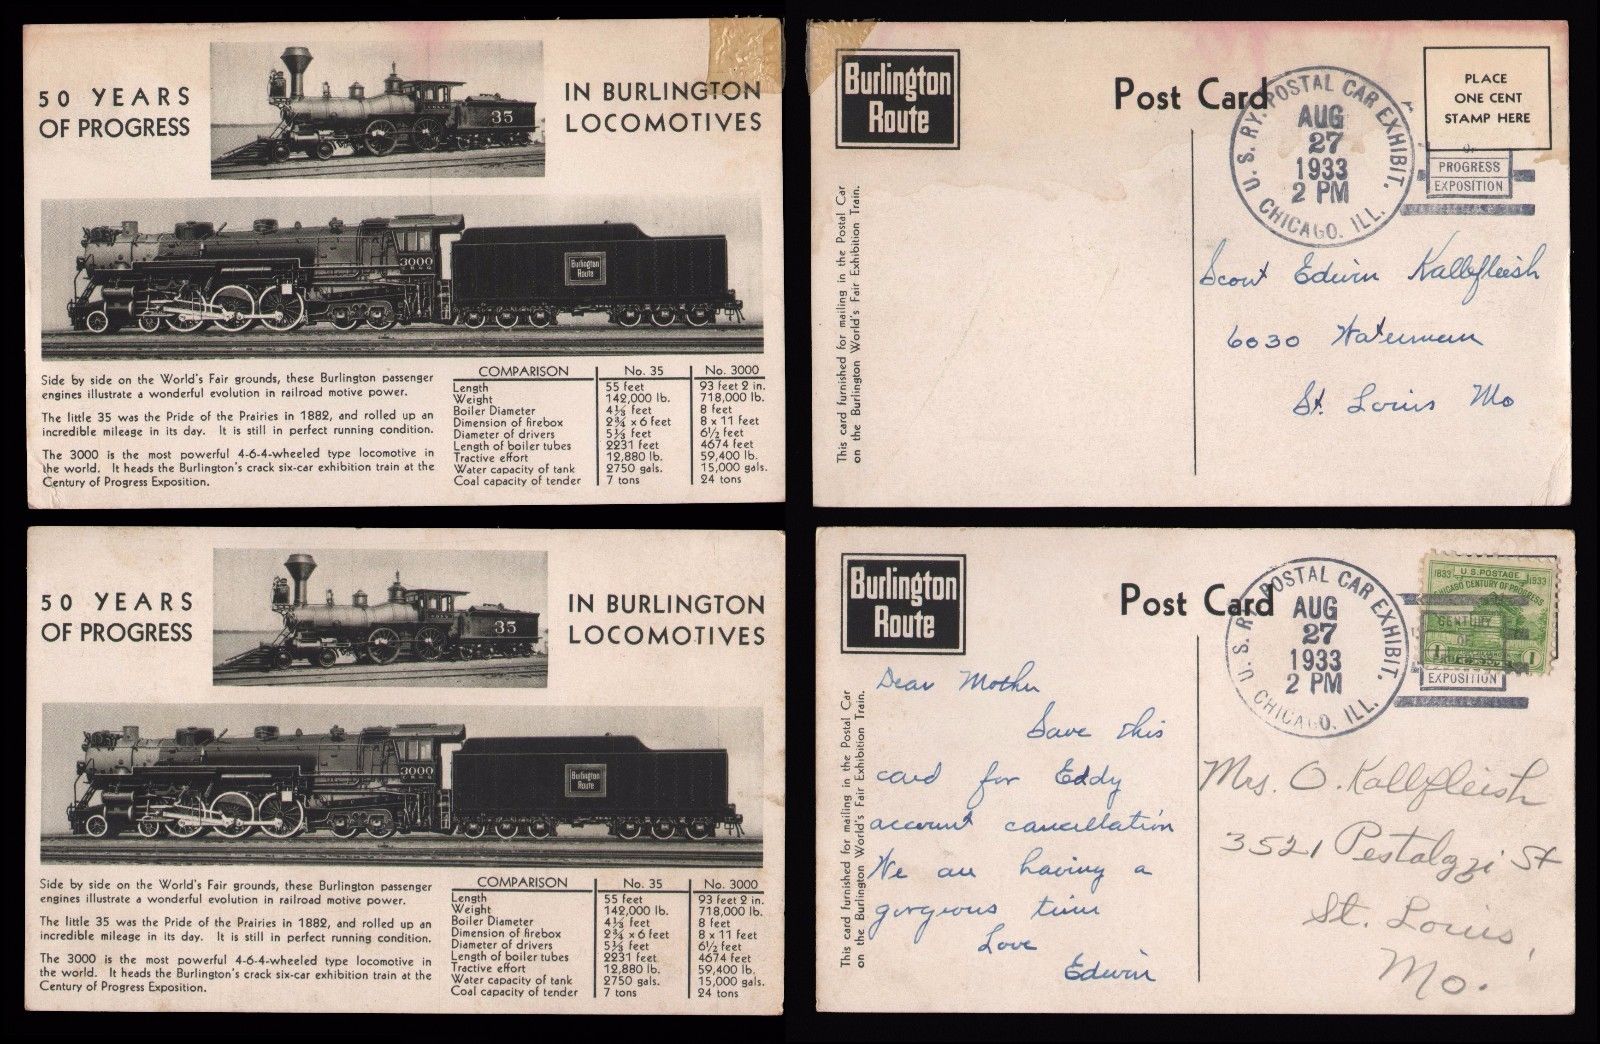 50 YEARS
OF PROGRESS
IN BURLINGTON
LOCOMOTIVES
35
3000
Burlington
Route
Side by side on the World's Fair grounds, these Burlington passenger
engines illustrate a wonderful evolution in railroad motive power.
The little 35 was the Pride of the Prairies in 1882, and rolled up an
incredible mileage in its day. It is still in perfect running condition.
The 3000 is the most powerful 4-6-4-wheeled type locomotive in
the world. It heads the Burlington's crack six-car exhibition train at the
Century of Progress Exposition.
COMPARISON No. 35 No. 3000
Length 55 feet 93 feet 2 in.
Weight 142,000 lb. 718,000 lb.
Boiler Diameter 4⅓ feet 8 feet
Dimension of firebox 2¾ x 6 feet 8 x 11 feet
Diameter of drivers 5⅓ feet 6½ feet
Length of boiler tubes 2231 feet 4674 feet
Tractive effort 12,880 lb. 59,400 lb.
Water capacity of tank 2750 gals. 15,000 gals.
Coal capacity of tender 7 tons 24 tons
Burlington
Route
Post Card
U. S. RY. POSTAL CAR EXHIBIT.
AUG
27
1933
2 PM
CHICAGO. ILL.
PLACE
ONE CENT
STAMP HERE
OF
PROGRESS
EXPOSITION
This card furnished for mailing in the Postal Car
on the Burlington World's Fair Exhibition Train.
Scout Edwin Kallfleish
6030 Waterman
St. Louis Mo
50 YEARS
OF PROGRESS
IN BURLINGTON
LOCOMOTIVES
35
3000
Burlington
Route
Side by side on the World's Fair grounds, these Burlington passenger
engines illustrate a wonderful evolution in railroad motive power.
The little 35 was the Pride of the Prairies in 1882, and rolled up an
incredible mileage in its day. It is still in perfect running condition.
The 3000 is the most powerful 4-6-4-wheeled type locomotive in
the world. It heads the Burlington's crack six-car exhibition train at the
Century of Progress Exposition.
COMPARISON No. 35 No. 3000
Length 55 feet 93 feet 2 in.
Weight 142,000 lb. 718,000 lb.
Boiler Diameter 4⅓ feet 8 feet
Dimension of firebox 2¾ x 6 feet 8 x 11 feet
Diameter of drivers 5⅓ feet 6½ feet
Length of boiler tubes 2231 feet 4674 feet
Tractive effort 12,880 lb. 59,400 lb.
Water capacity of tank 2750 gals. 15,000 gals.
Coal capacity of tender 7 tons 24 tons
Burlington
Route
Post Card
U. S. RY. POSTAL CAR EXHIBIT.
AUG
27
1933
2 PM
CHICAGO. ILL.
1833 U.S. POSTAGE 1933
CHICAGO CENTURY OF PROGRESS
CENTURY
OF
1 1
EXPOSITION
This card furnished for mailing in the Postal Car
on the Burlington World's Fair Exhibition Train.
Dear Mother
Save this
card for Eddy
account cancellation
We are having a
gorgeous time
Love
Edwin
Mrs. O. Kallfleish
3521 Pestalozzi St
St. Louis,
Mo.